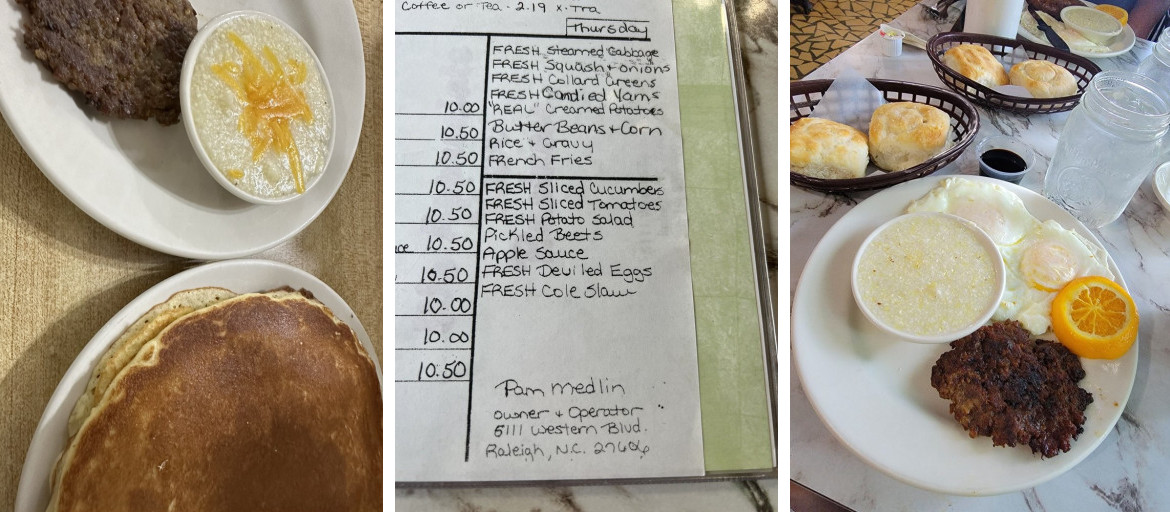 Coffee or Tea - 2.19 x-Tra
Thursday
FRESH Steamed Cabbage
FRESH Squash + onions
FRESH Collard Greens
FRESH Candied Yams
"REAL" Creamed Potatoes
Butter Beans + Corn
Rice + Gravy
French Fries
FRESH Sliced Cucumbers
FRESH Sliced Tomatoes
FRESH Potato Salad
Pickled Beets
Apple Sauce
FRESH Devilled Eggs
FRESH Cole Slaw
10.00
10.50
10.50
10.50
10.50
10.50
10.50
10.00
10.00
10.50
Pam Medlin
owner + Operator
5111 Western Blvd.
Raleigh, N.C. 27606